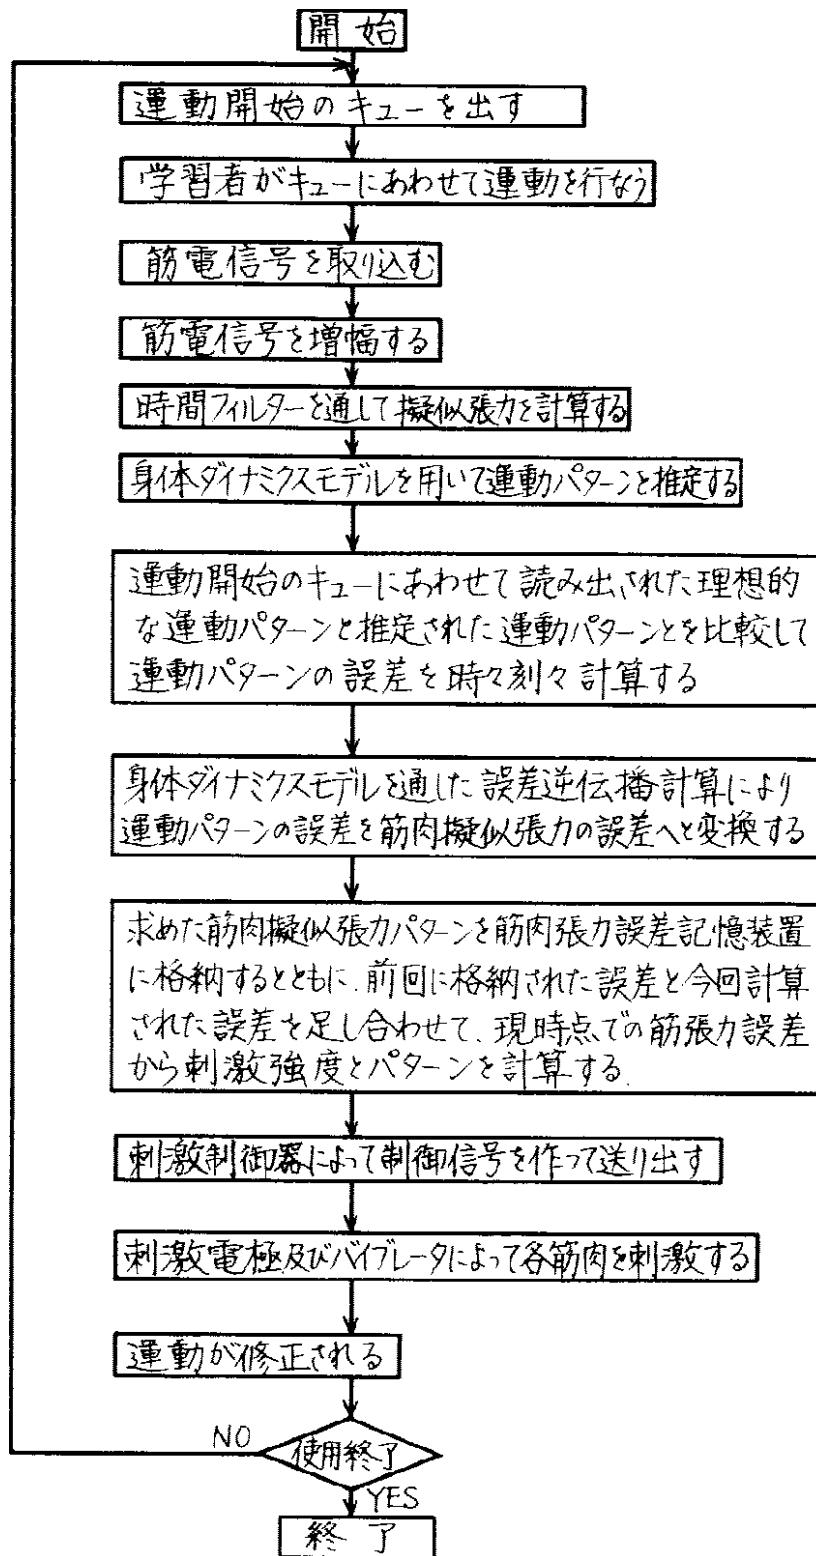 開始
運動開始のキューを出す
学習者がキューにあわせて運動を行なう
筋電信号を取り込む
筋電信号を増幅する
時間フィルターを通して擬似張力を計算する
身体ダイナミクスモデルを用いて運動パターンと推定する
運動開始のキューにあわせて読み出された理想的
な運動パターンと推定された運動パターンとを比較して
運動パターンの誤差を時々刻々計算する
身体ダイナミクスモデルを通した誤差逆伝播計算により
運動パターンの誤差を筋肉擬似張力の誤差へと変換する
求めた筋肉擬似張力パターンを筋肉張力誤差記憶装置
に格納するとともに、前回に格納された誤差と今回計算
された誤差を足し合わせて、現時点での筋張力誤差
から刺激強度とパターンを計算する.
刺激制御器によって制御信号を作って送り出す
刺激電極及びバイブレータによって各筋肉を刺激する
運動が修正される
NO
使用終了
YES
終了